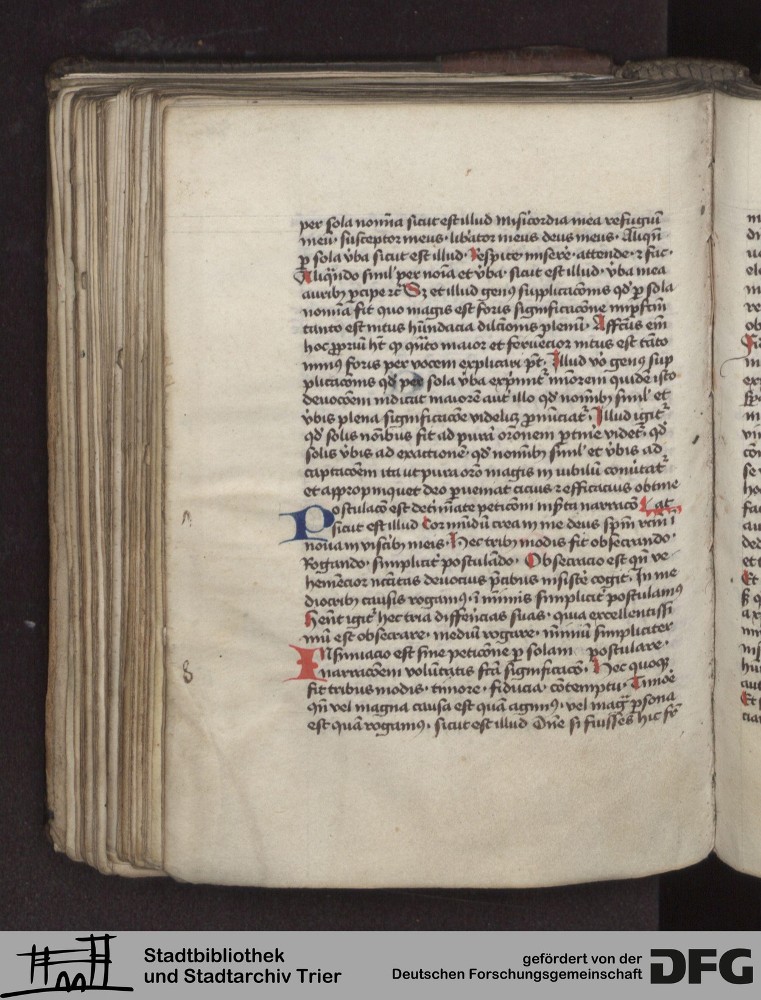 per sola noma sicut est illud misericordia mea refugiu
meu· susceptor meus· libator meus deus meus· Aliqn
p sola vba sicut est illud· Respice· misere· attende· z fac·
Aliqndo simil per noma et vba· sicut est illud· vba mea
aurib pcipe rc Sz et illud gen9 supplicacois qd p sola
nomina fit quo magis est foris significacone impfcm
tanto est intus habundacia dilcionis plenu· Affcus em
hoc ppriu ht q quto maior et feruecior intus est tato
min9 foris per vocem explicari pt· Illud vo gen9 sup
plicacois qd per sola vba exprimit minorem quide isto
deuocoem indicat maiore aut illo qd nomib simil et
vbis plena significacoe videlicz pnuciat· Illud igit
qd solis noibus fit ad pura oronem ptine videt· qd
solis vbis ad exactione· qd nomib simil et vbis ad
captacoem ita ut pura oro magis in iubilu conutat
et appropinquet deo puemat cicius z efficacius obtine
Postulaco est detimate peticoni inserta narraco Lat
sicut est illud Cor mudu crea in me deus spm rcm i
noua in viscib meis· Hec trib modis fit obsecrando·
Rogando· simplicit postulado· Obsecracio est qn ve
hemecior ncitas deuocius pcibus insiste cogit· In me
diocrib causis rogam9· i minimis simplicit postulam9
Hent igit hec tria differencias suas· quia excellentissi
mu est obsecrare· mediu rogare· minimu simpliciter
postulare·
Insinuacio est sine peticone p solam
narracoem volutatis fca significaco· Hec quoq
fit tribus modis· timore· fiducia· cotemptu· Timoe
qn vel magna causa est qua agim9· vel mag psona
est qua rogam9· sicut est illud Dne si fuisses hic fr
Stadtbibliothek
und Stadtarchiv Trier
gefördert von der
Deutschen Forschungsgemeinschaft
DFG